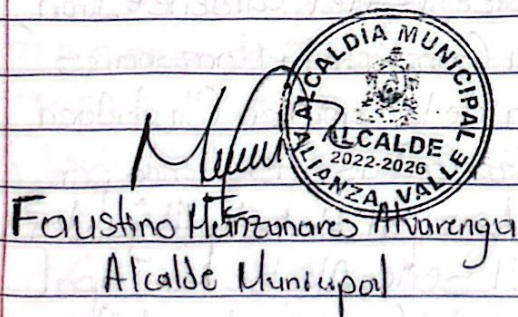 ALCALDÍA MUNICIPAL
ALCALDE
2022-2026
ALIANZA, VALLE
Faustino Manzanares Alvarenga
Alcalde Municipal